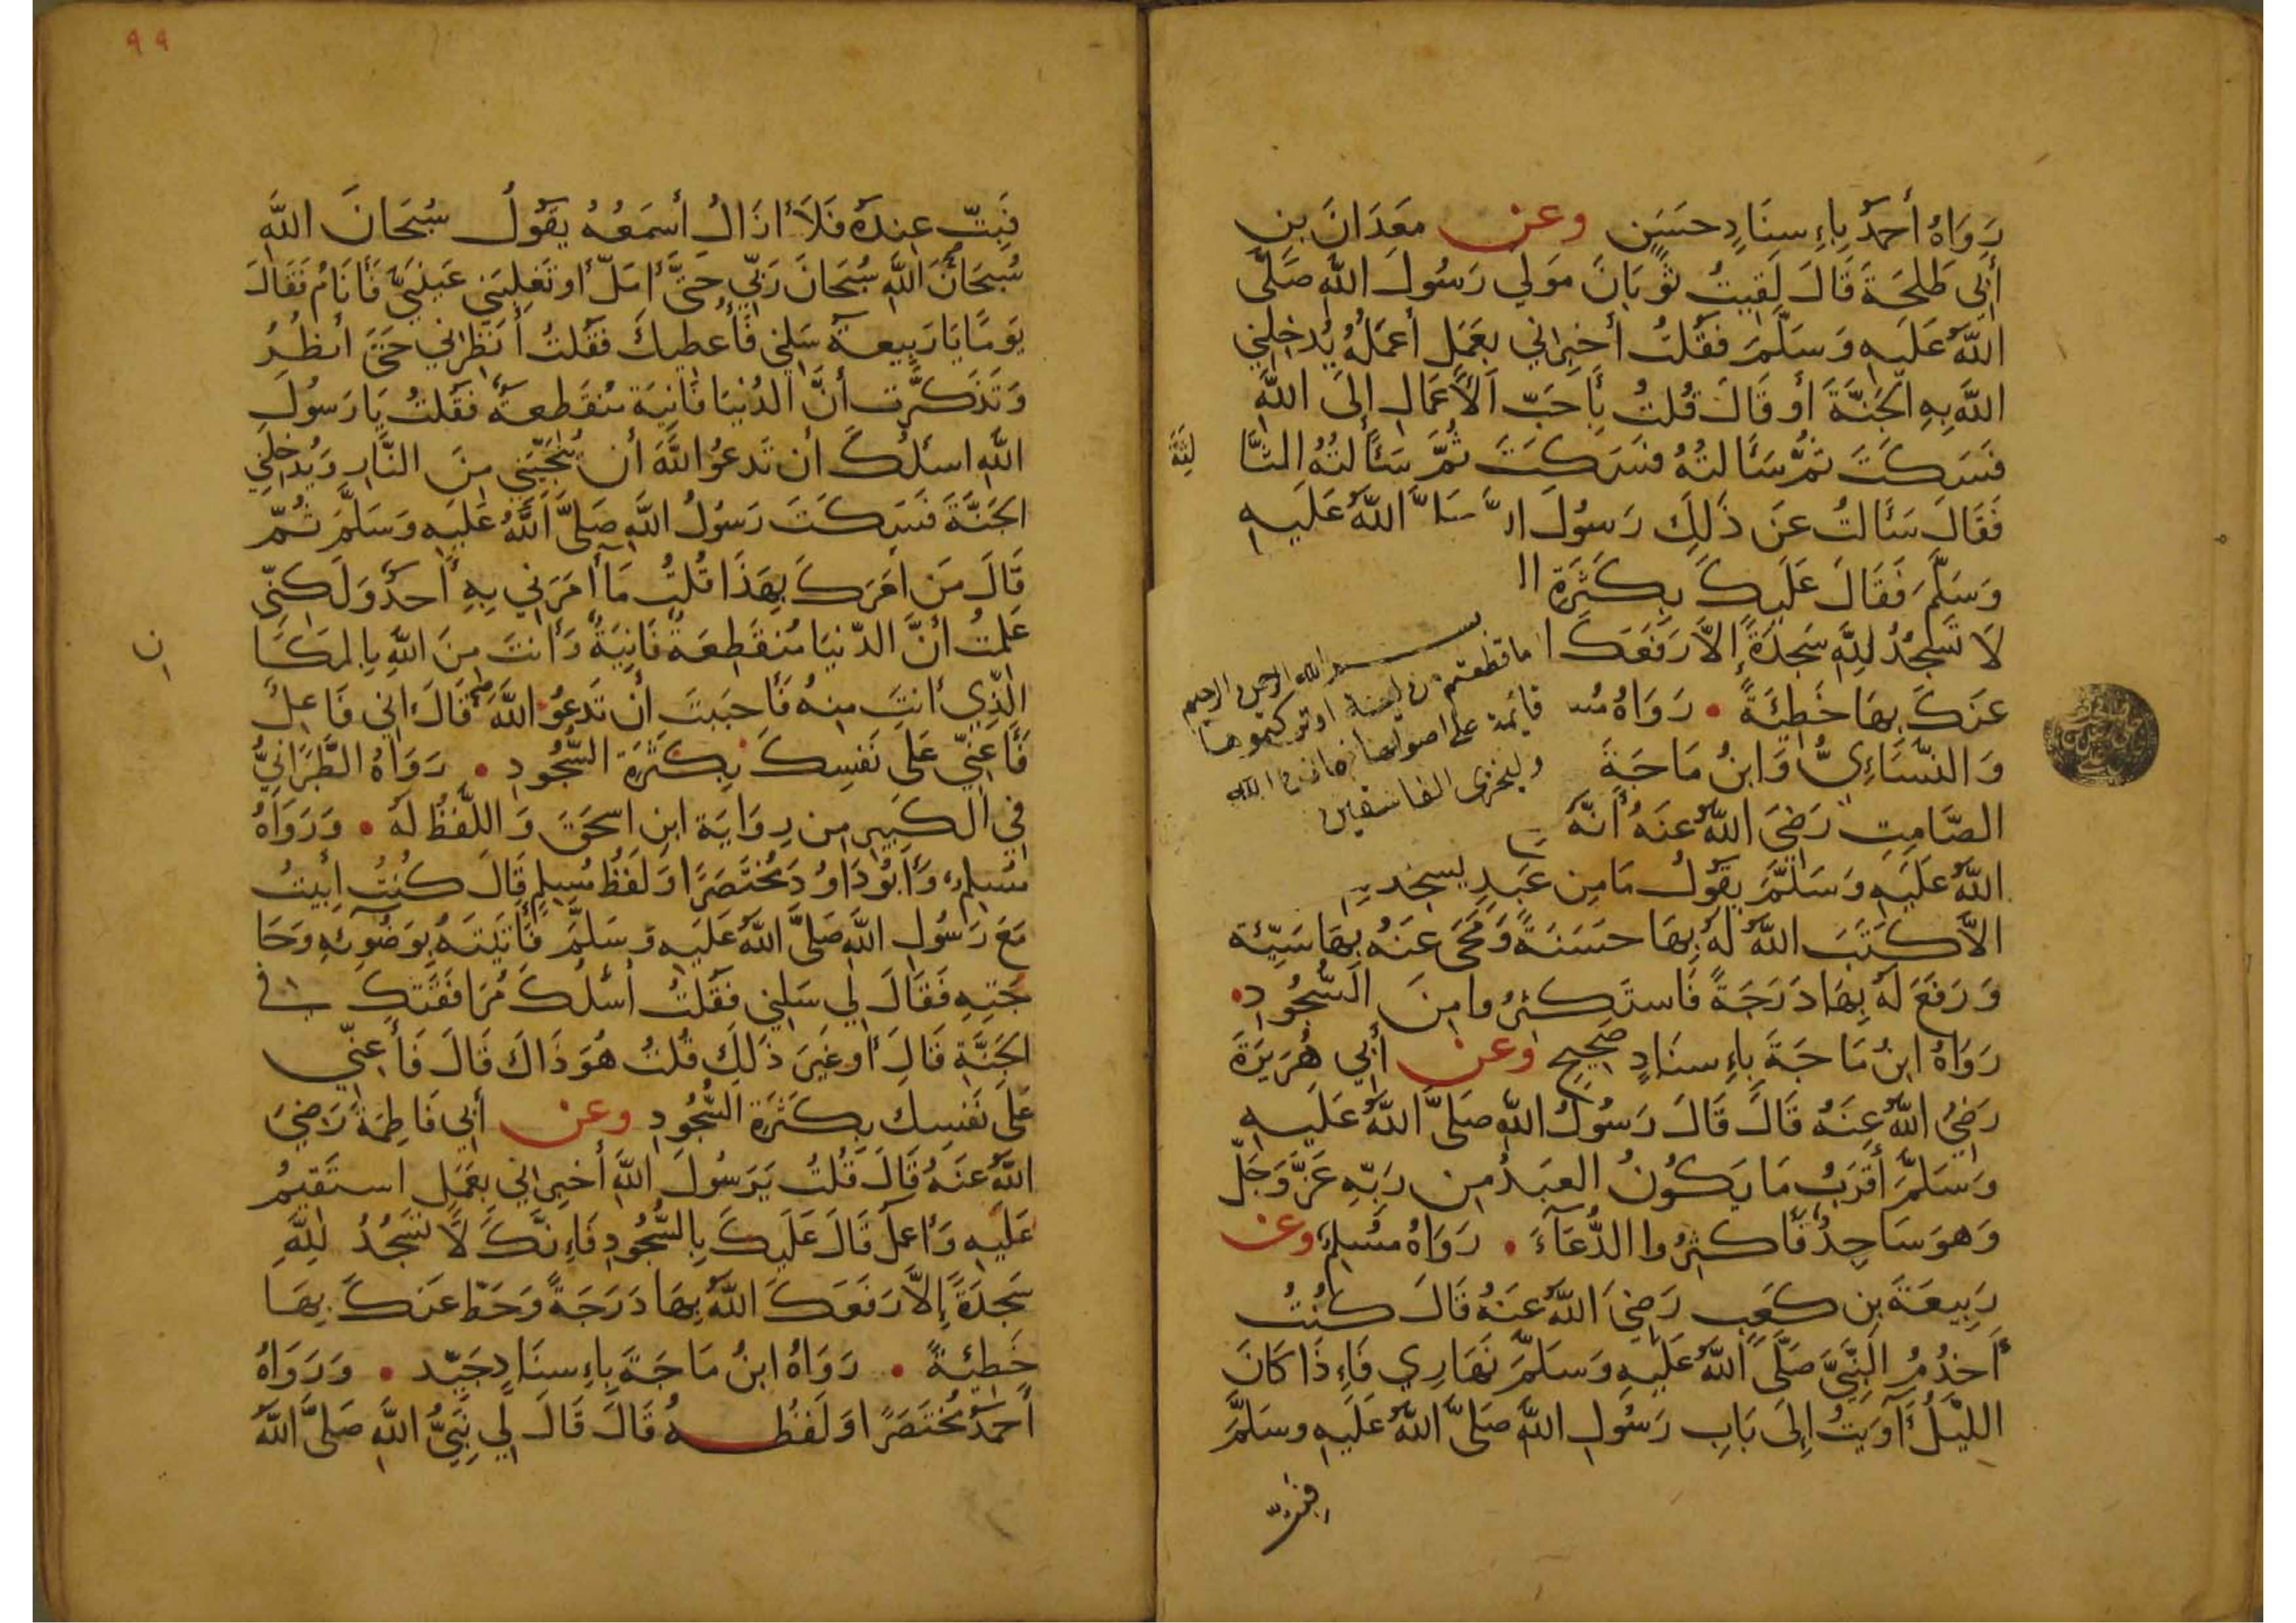 رَوَاهُ أَحْمَدُ بِإِسنَادٍ حَسَنٍ وعن مَعدَانَ بنِ
أَبِي طَلحَةَ قَالَ لَقِيتُ ثَوبَانَ مَولَي رَسُولِ اللَّهِ صَلَّى
اللَّهُ عَلَيهِ وَسَلَّمَ فَقُلتُ أَخبِرانِي بِعَمَلٍ أَعمَلُهُ يُدخِلُنِي
اللَّهُ بِهِ الجَنَّةَ أَو قَالَ قُلتُ بِأَحَبِّ الأَعمَالِ إِلَى اللَّهِ
فَسَكَتَ ثُمَّ سَأَلتُهُ فَسَكَتَ ثُمَّ سَأَلتُهُ الثَّا لِثَةَ
فَقَالَ سَأَلتُ عَن ذَلِكَ رَسُولَ اللَّهُ عَلَيهِ
وَسَلَّمَ فَقَالَ عَلَيكَ بِكَثرَةِ
لَا تَسجُدُ لِلَّهِ سَجدَةً إِلَّا رَفَعَكَ
عَنكَ بِهَا خَطِيئَةً • رَوَاهُ
وَالنَّسَائِيُّ وَابنُ مَاجَةَ
الصَّامِتِ رَضِيَ اللَّهُ عَنهُ أَنَّهُ
اللَّهُ عَلَيهِ وَسَلَّمَ يَقُولُ مَا مِن عَبدٍ يسجد
إلَّا كَتَبَ اللَّهُ لَهُ بِهَا حَسَنَةً وَمَحَى عَنهُ بِهَا سَيِّئَة
وَرَفَعَ لَهُ بِهَا دَرَجَةً فَاستَكثِرُوا مِنَ السُّجُودِ •
رَوَاهُ ابنُ مَاجَةَ بِإِسنَادٍ صَحِيحٍ وعن أَبِي هُرَيرَةَ
رَضِيَ اللَّهُ عَنهُ قَالَ قَالَ رَسُولُ اللَّهِ صَلَّى اللَّهُ عَلَيهِ
وَسَلَّمَ أَقرَبُ مَا يَكُونُ العَبدُ مِن رَبِّهِ عَزَّ وَجَلَّ
وَهوَ سَاجِدٌ فَأَكثِرُوا الدُّعَاءَ • رَوَاهُ مُسلِمٌ وعن
رَبِيعَةَ بنِ كَعبٍ رَضِيَ اللَّهُ عَنهُ قَالَ كُنتُ
أَخدُمُ النَّبِيَّ صَلَّى اللَّهُ عَلَيهِ وَسَلَّمَ نَهَارِي فَإِذَا كَانَ
اللَّيلُ أَوَيتُ إِلَى بَابِ رَسُولِ اللَّهِ صَلَّى اللَّهُ عَلَيهِ وسَلَّمَ
بسم الله الرحمن الرحيم
ما قطعتم من لينة او تركتموها
قائمة على اصولها فباذن الله
وليخزى الفاسقين
٩٩
فَبِتُّ عِندَهُ فَلَا ازَالُ أَسمَعُهُ يَقُولُ سُبحَانَ اللَّهِ
سُبحَانَ اللَّهِ سُبحَانَ رَبِّي حَتَّى أَمَلَّ أَو تَغلِبَنِي عَينَيَّ فَأَنَامُ فَقَالَ
يَومًا يَا رَبِيعَة سَلنِي فَأُعطِيكَ فَقُلتُ أَنظِرانِي حَتَّى أنظُرَ
وَتَذَكَّرتُ أَنَّ الدُنيَا فَانِيَة مُنقَطِعَةٌ فَقُلتُ يَا رَسُولَ
اللَّهِ اسئَلُكَ أَن تَدعُوَ اللَّهَ أَن يُنجِيَنِي مِنَ النَّارِ وَيُدخِلَنِي
الجَنَّةَ فَسَكَتَ رَسُولُ اللَّهِ صَلَّى اللَّهُ عَلَيهِ وَسَلَّمَ ثُمّ
قَالَ مَن امَرَكَ بِهَذَا قُلتُ مَا أَمَرَنِي بِهِ أَحَدٌ وَلَكِنِّي
عَلِمتُ انَّ الدّنيَا مُنقَطِعَة فَانِيَةٌ وَأَنتَ مِنَ اللَّهِ بِالمَكَا ن
الَّذِي أَنتَ مِنهُ فَأَحبَبتُ أَن تَدعُوَ اللَّهَ قَالَ إنِي فَاعِلٌ
فَأَعِنِّي عَلَى نَفسِكَ بِكَثرَةِ السُّجُودِ • رَوَاهُ الطَّبَرَانِيُّ
فِي الكَبِيرِ مِن رِوَايَة ابنِ اسحَقَ وَاللَّفظُ لَهُ • وَرَوَاهُ
مُسلِمٌ وَأَبُو دَاوُدَ مُختَصَرًا وَلَفظُ مُسلِمٍ قَالَ كُنتُ أَبِيتُ
مَعَ رَسُولِ اللَّهِ صَلَّى اللَّهُ عَلَيهِ وَسَلَّمَ فَأَتَيتَهُ بِوَضُوئِهِ وَحَا
جَتِهِ فَقَالَ لِي سَلنِي فَقُلتُ أَسئَلُكَ مُرَافَقَتَكَ في
الجَنَّةِ قَالَ أَو غَيرَ ذَلِكَ قُلتُ هُوَ ذَاكَ قَالَ فَأَعِنِّي
عَلَى نَفسِكَ بِكَثرَةِ السُّجُودِ وعن أَبِي فَاطِمَةَ رَضِيَ
اللَّهُ عَنهُ قَالَ قُلتُ يَرَسُولَ اللَّهِ أَخبِرانِي بِعَمَلٍ استَقِيمُ
عَلَيهِ وَأَعمَلُ قَالَ عَلَيكَ بِالسُّجُودِ فَإِنَّكَ لَا تَسجُدُ لِلَّهِ
سَجدَةً إِلَّا رَفَعَكَ اللَّهُ بِهَا دَرَجَةً وَحَطَّ عَنكَ بِهَا
خَطِيئَةً • رَوَاهُ ابنُ مَاجَةَ بِإِسنَادٍ جَيِّد • وَرَوَاهُ
أَحمَدُ مُختَصَرًا وَلَفظُهُ قَالَ قَالَ لِي نَبِيُّ اللَّهِ صَلَّى اللَّهُ